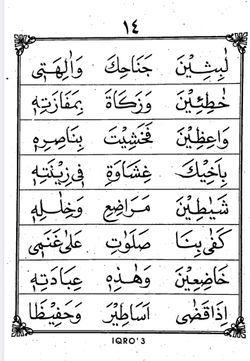 ١٤
لٰبِثِيْنَ جَنَاحِكَ وَاٰلِهَتِىْ
خٰطِئِيْنَ وَزَكَاةً بِمَفَازَتِهٖ
وَاعِظِيْنَ فَخَشِيْتَ بِنَاصِرِهٖ
بِاَخِيْكَ غِشَاوَةٌ فِىْ زِيْنَتِهٖ
شَيٰطِيْنَ مَرَاضِعَ وَخِلٰلِهٖ
كَفٰى بِنَا صَلَوٰتِ عَلٰى غَنَمِىْ
خَاضِعِيْنَ وَهٰذِهٖ عِبَادَتِهٖ
اِذَا قَضٰى اَسَاطِيْرُ وَحَفِيْظًا
IQRO' 3